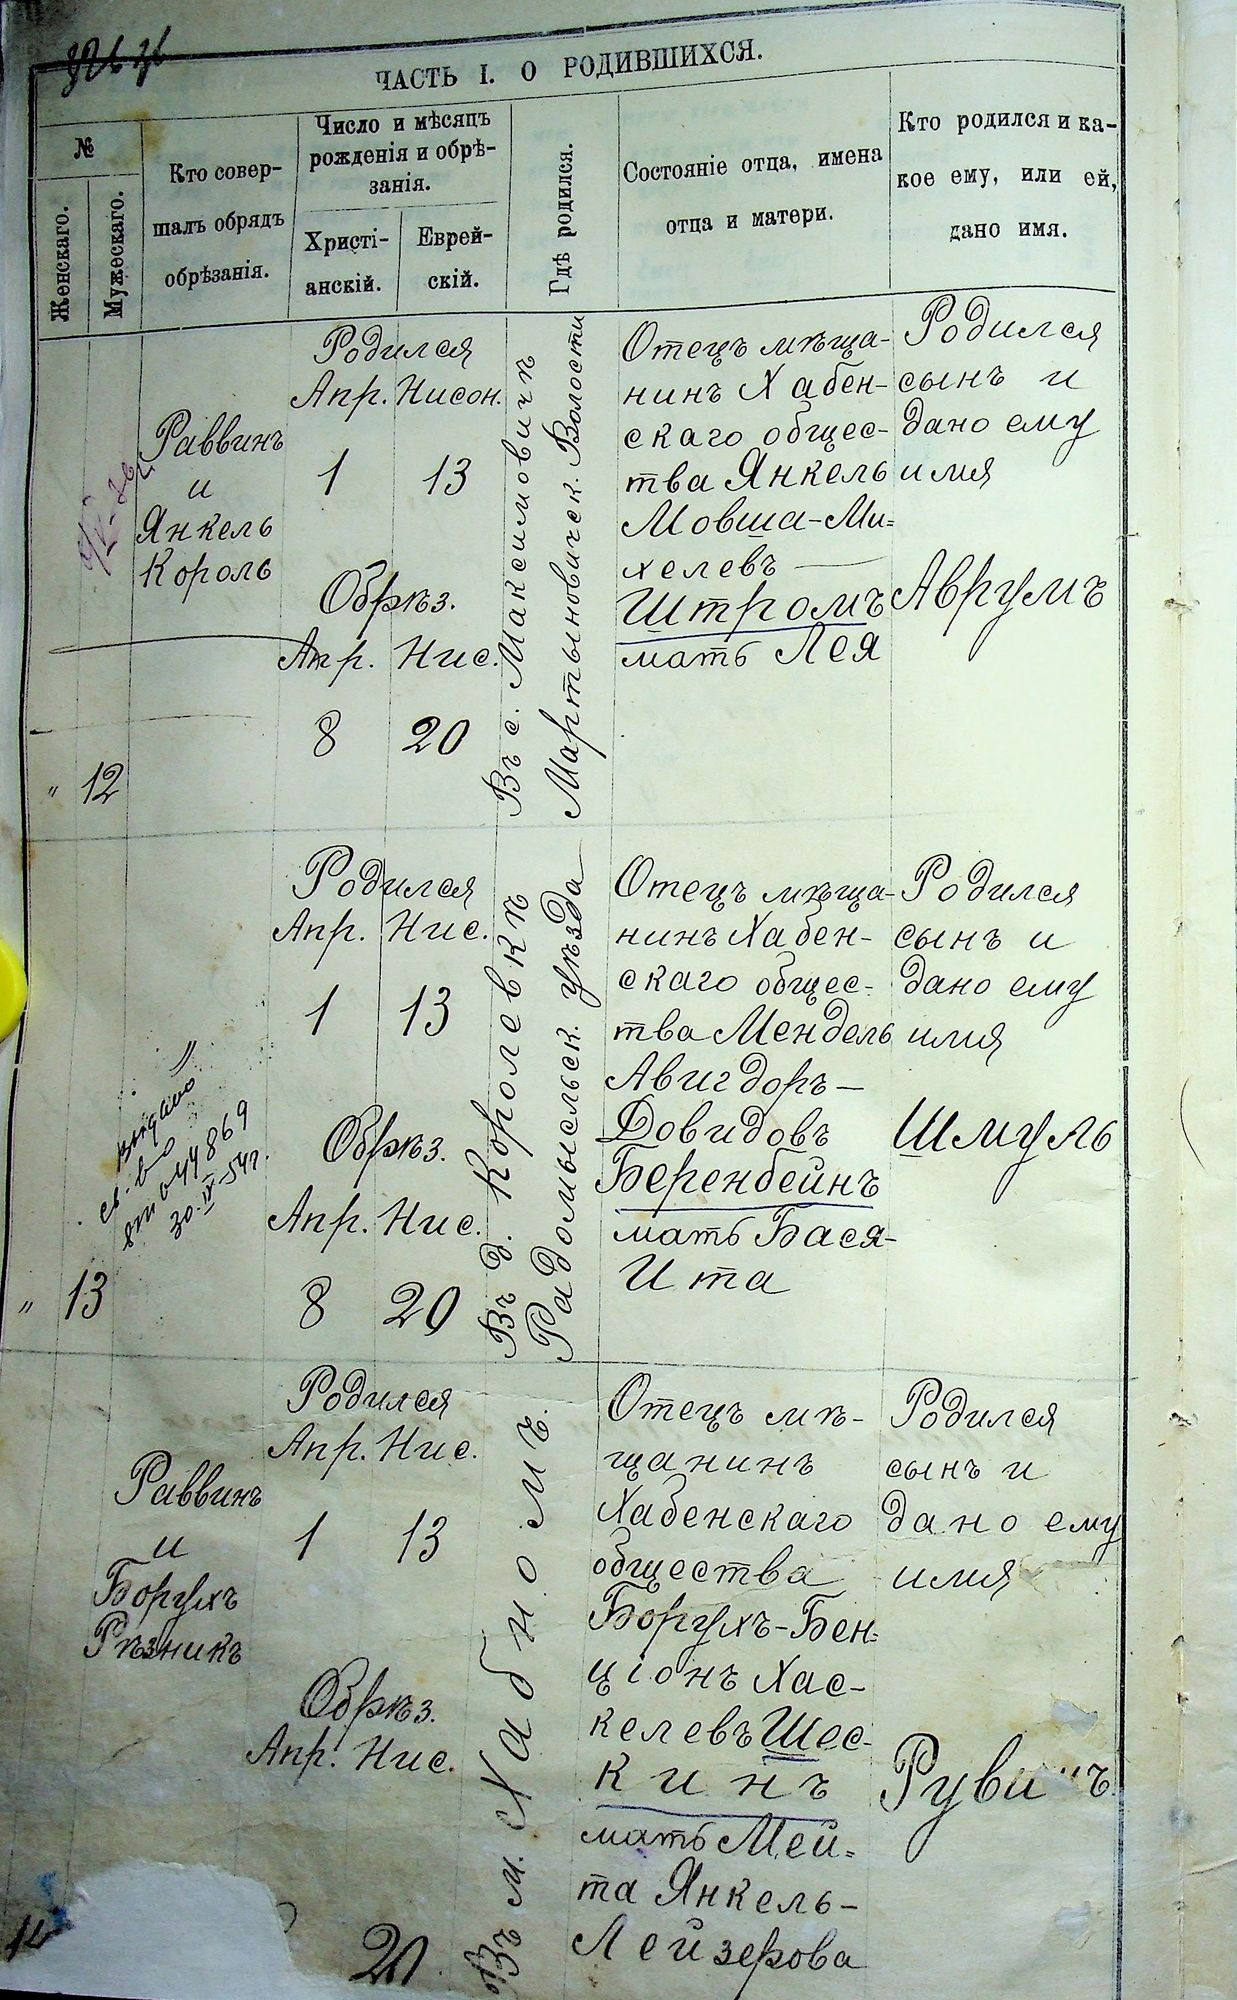 ЧАСТЬ I. О РОДИВШИХСЯ.
№
Женскаго.
Мужескаго.
Кто совер-
шалъ обрядъ
обрѣзанія.
Число и мѣсяцъ
рожденія и обрѣ-
занія.
Христі-
анскій.
Еврей-
скій.
Гдѣ родился.
Состояніе отца, имена
отца и матери.
Кто родился и ка-
кое ему, или ей,
дано имя.
„ 12
Раввинъ
и
Янкель
Король
Родился
Апр. Нисон.
1 13
Обрѣз.
Апр. Нис.
8 20
Въ с. Максимовичѣ
Мартыновичск. Волости
Отецъ мѣща-
нинъ Хабен-
скаго общес-
тва Янкель
Мовша-Ми-
хелевъ
Штромъ
мать Лея
Родился
сынъ и
дано ему
имя
Аврумъ
„ 13
выдано
св-во
044869
30-IV-54г.
Родился
Апр. Нис.
1 13
Обрѣз.
Апр. Нис.
8 20
Въ д. Королевкѣ
Радомысльск. уѣзда
Отецъ мѣща-
нинъ Хабен-
скаго общес-
тва Мендель
Авигдоръ-
Довидовъ
Беренбейнъ
мать Бася-
Ита
Родился
сынъ и
дано ему
имя
Шмуль
Раввинъ
и
Борухъ
Рѣзникъ
Родился
Апр. Нис.
1 13
Обрѣз.
Апр. Нис.
20
Въ м. Хабномъ.
Отецъ мѣ-
щанинъ
Хабенскаго
общества
Борухъ-Бен-
ціонъ Хас-
келевъ Шес-
кинъ
мать Мей-
та Янкель-
Лейзерова
Родился
сынъ и
дано ему
имя
Рувинъ